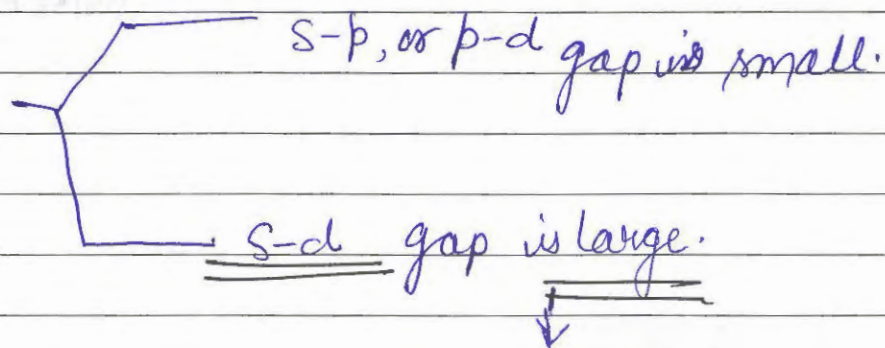 s-p, or p-d gap is small.
s-d gap is large.